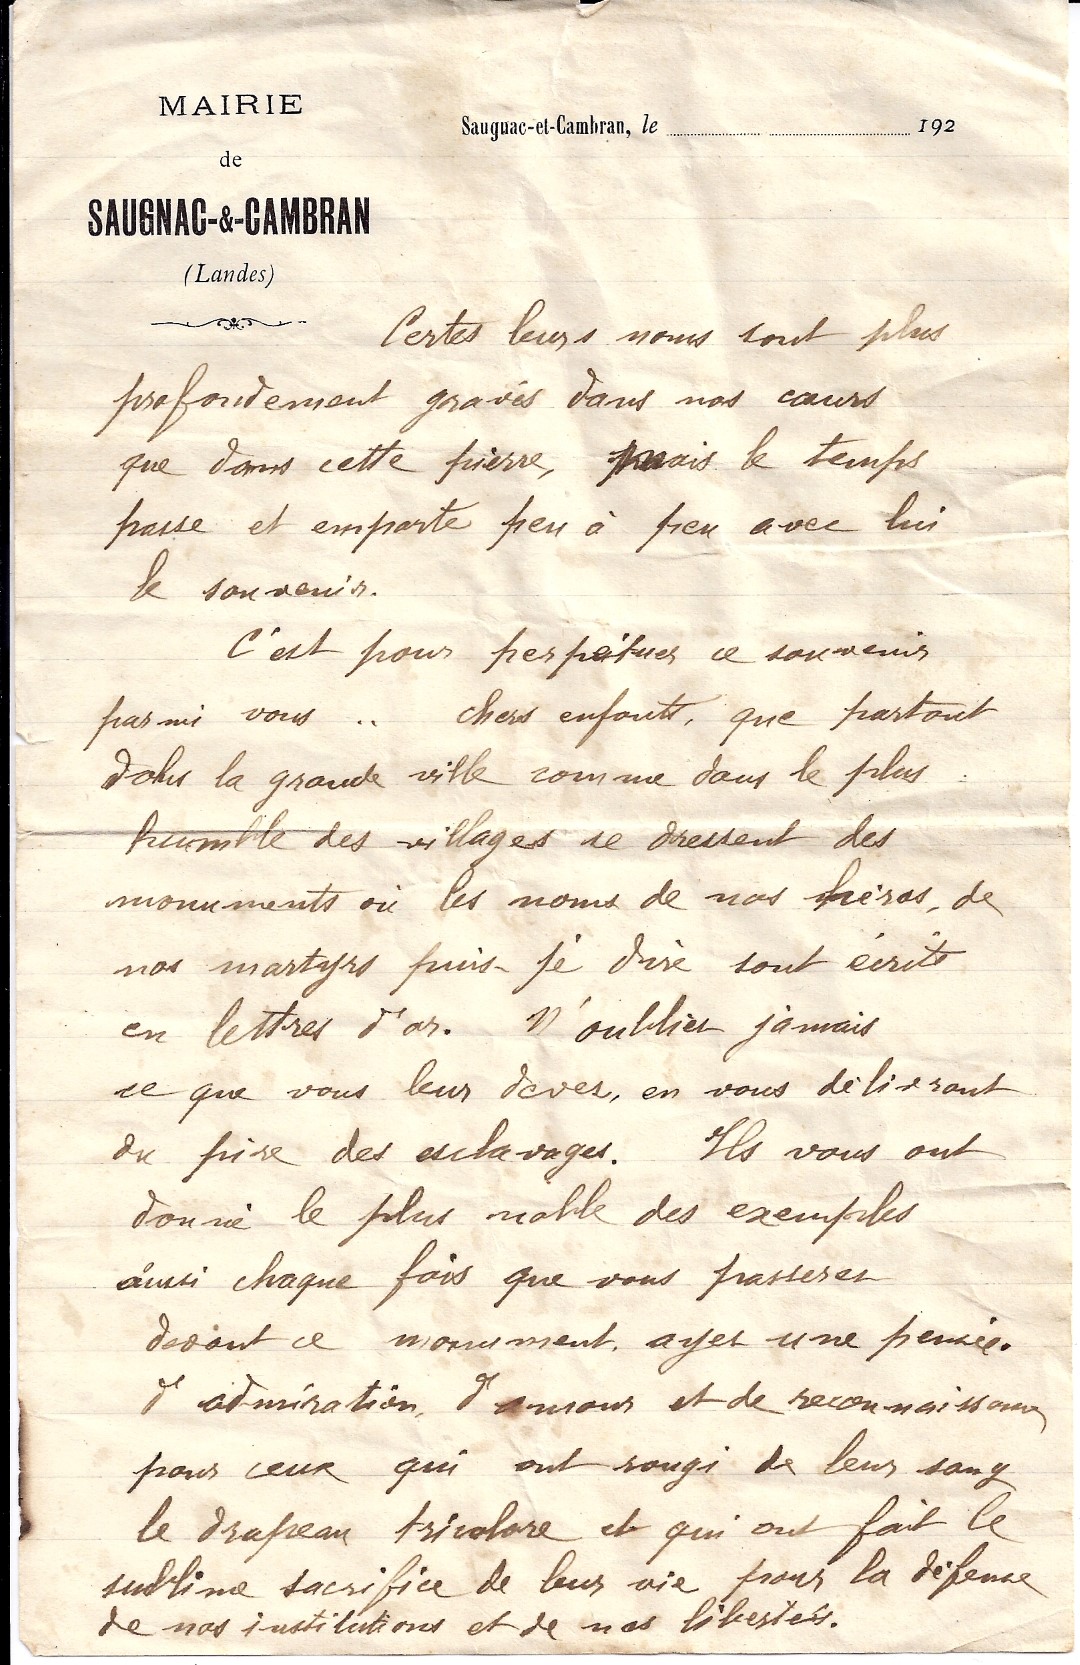 MAIRIE
de
SAUGNAC-&-CAMBRAN
(Landes)
Saugnac-et-Cambran, le 192
Certes leurs noms sont plus
profondement gravés dans nos cœurs
que dans cette pierre, mais le temps
passe et emporte peu à peu avec lui
le souvenir.
C'est pour perpétuer ce souvenir
parmi vous .. chers enfants, que partout
dans la grande ville comme dans le plus
humble des villages se dressent des
monuments où les noms de nos héros, de
nos martyrs puis-je dire sont écrits
en lettres d'or. N'oubliez jamais
ce que vous leur devez, en vous délivrant
du pire des esclavages. Ils vous ont
donné le plus noble des exemples
aussi chaque fois que vous passerez
devant ce monument, ayez une pensée.
d'admiration, d'amour et de reconnaissance
pour ceux qui ont rougi de leur sang
le drapeau tricolore et qui ont fait le
sublime sacrifice de leur vie pour la défense
de nos institutions et de nos libertés.